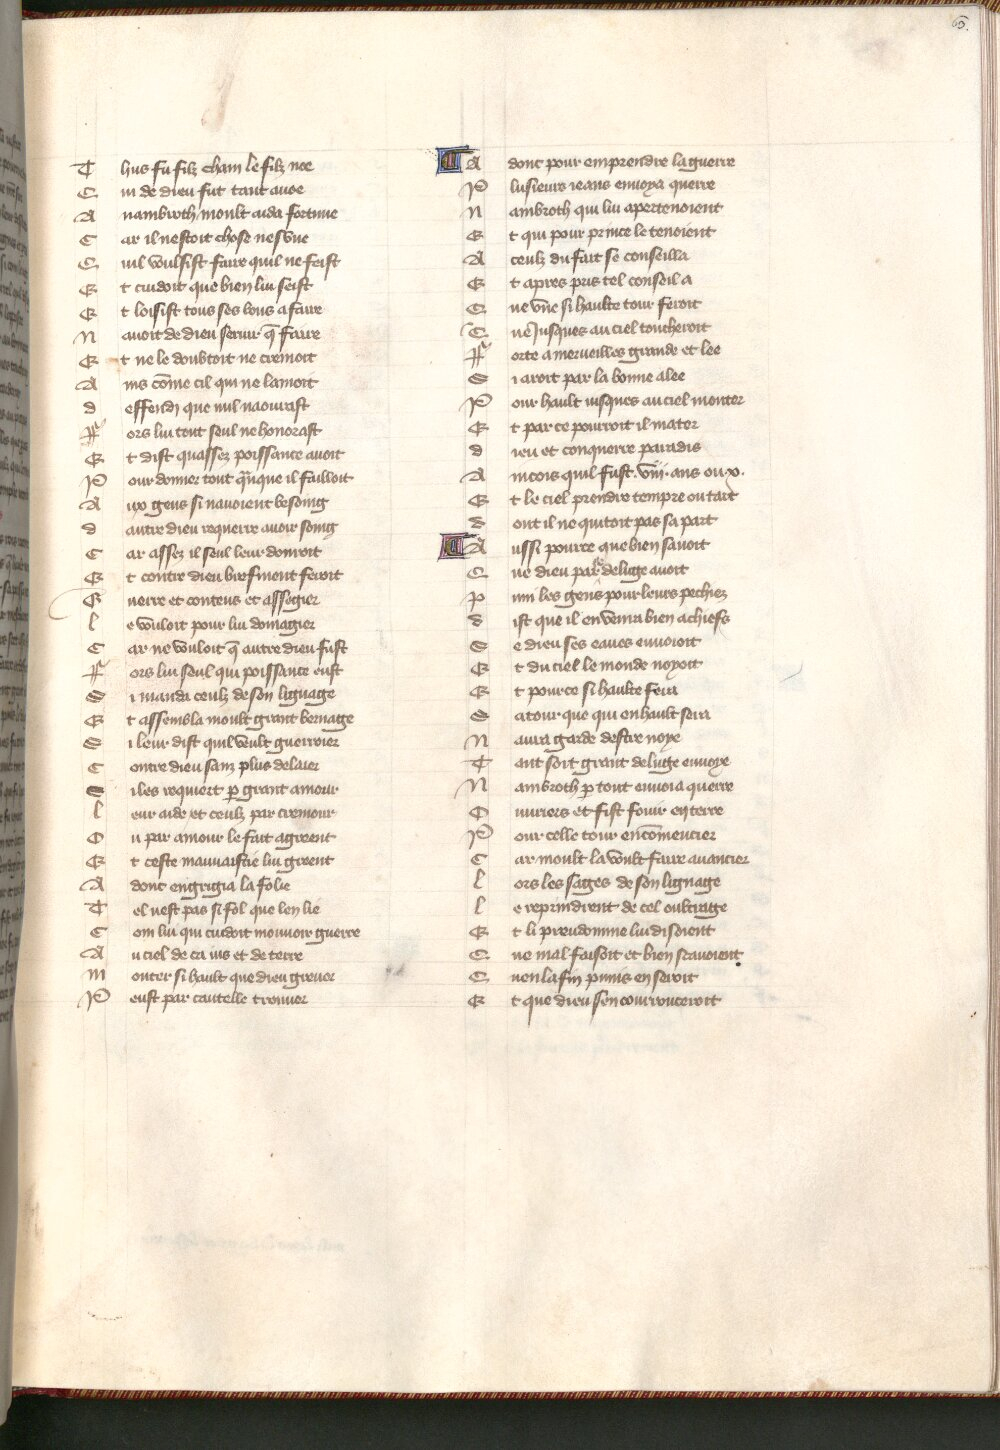 65.
Thus fu filz cham le filz noe
Cui de dieu fut tant auoe
A nambroth moult aida fortune
Car il nestoit chose nesvne
Quil voulsist faire quil ne feist
Et cuidoit que bien lui seist
Et loisist tous ses bons a faire
Nauoit de dieu seruir q̄ faire
Et ne le doubtoit ne cremoit
Ains cōme cil qui ne lamoit
deffendi que nul naourast
Fors lui tout seul ne honorast
Et dist quassez poissance auoit
Pour donner tout q̄nque il failloit
Aux gens si nauoient besoing
dautre dieu requerre auoir soing
Car assez il seul leur donroit
Et contre dieu briefment feroit
Guerre et contens et asseger
le vouloit pour lui domagier
Car ne vouloit q̄ autre dieu fust
Fors lui seul qui poissance eust
Si manda ceulz de son lignage
Et assembla moult grant bernage
Si leur dist quil veult guerroier
Contre dieu sanz plus delaier
Si les requiert p grant amour
leur aide et ceulz par cremour
Ou par amour le fait agreent
Et ceste mauuaistie lui greent
Adont engrigia la folie
Tel nest pas si fol que len lie
Com lui qui cuidoit mouuoir guerre
Au ciel de ca ius et de terre
monter si hault que dieu greuer
Peust par cautelle trouuer
Adont pour emprendre la guerre
Plusieurs ieans enuoya querre
nambroth qui lui apertenoient
Et qui pour prince le tenoient
A ceulz du fait se conseilla
Et apres pris tel conseil a
Qune vne si haulte tour feroit
Que jusques au ciel toucheroit
Forte a merueilles grande et lee
Si aroit par la bonne alee
Pour hault iusques au ciel monter
Et par ce pourroit il mater
dieu et conquerre paradis
Aincois quil fust .viii. ans ou .x.
Et le ciel prendre tempre ou tart
dont il ne quitoit pas sa part
Aussi pource que bien sauoit
Que dieu par le deluge auoit
puni les gens pour leurs pechiez
dist que il en venra bien a chiefs
Se dieu ses eaues enuoioit
Et du ciel le monde noyoit
Et pource si haulte fera
Sa tour que qui en hault sera
Naura garde destre noye
Tant soit grant deluge enuoye
Nambroth p tout enuoia querre
Ouuriers et fist fouir en terre
Pour celle tour encōmencier
Car moult la voult faire auancier
lors les sages de son lignage
le reprindrent de cel oultrage
Et li preudomme lui disoient
Que mal faisoit et bien sauoient
Quen la fin punis en seroit
Et que dieu sen courrouceroit